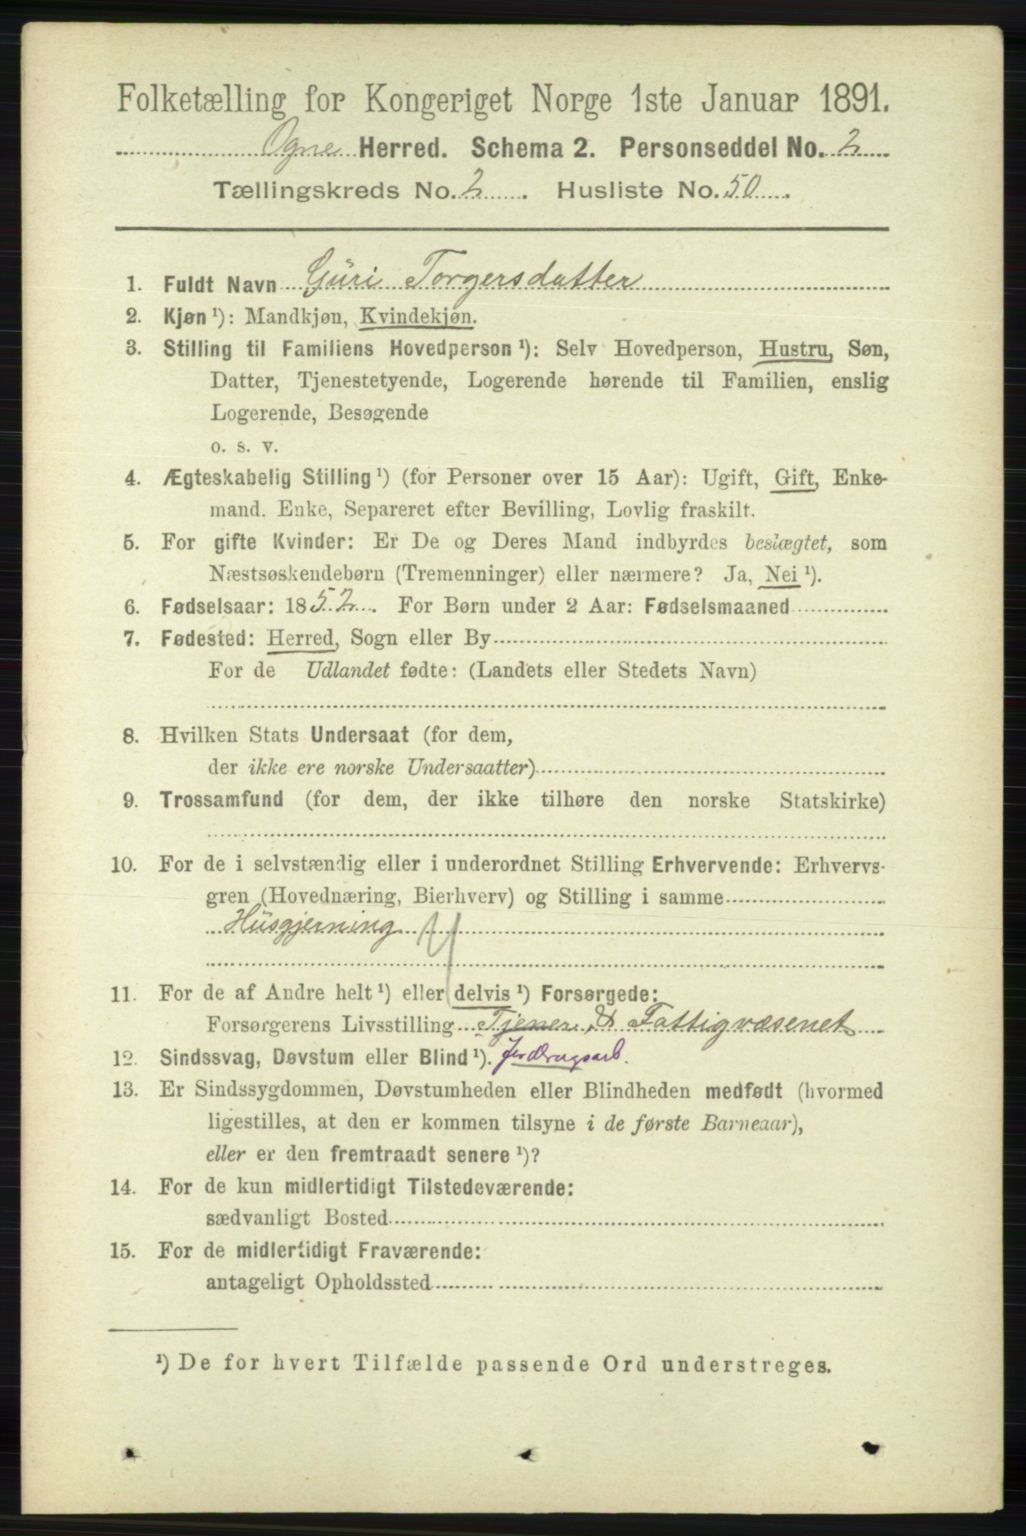 Folketælling for Kongeriget Norge 1ste Januar 1891.
Ogne Herred. Schema 2. Personseddel No. 2
Tællingskreds No. 2. Husliste No. 50.
1. Fuldt Navn Guri Torgersdatter
2. Kjøn ¹): Mandkjøn, Kvindekjøn.
3. Stilling til Familiens Hovedperson ¹): Selv Hovedperson, Hustru, Søn,
Datter, Tjenestetyende, Logerende hørende til Familien, enslig
Logerende, Besøgende
o. s. v.
4. Ægteskabelig Stilling ¹) (for Personer over 15 Aar): Ugift, Gift, Enke-
mand, Enke, Separeret efter Bevilling, Lovlig fraskilt.
5. For gifte Kvinder: Er De og Deres Mand indbyrdes beslægtet, som
Næstsøskendebørn (Tremenninger) eller nærmere? Ja, Nei ¹).
6. Fødselsaar: 1852. For Børn under 2 Aar: Fødselsmaaned
7. Fødested: Herred, Sogn eller By
For de Udlandet fødte: (Landets eller Stedets Navn)
8. Hvilken Stats Undersaat (for dem,
der ikke ere norske Undersaatter)
9. Trossamfund (for dem, der ikke tilhøre den norske Statskirke)
10. For de i selvstændig eller i underordnet Stilling Erhvervende: Erhvervs-
gren (Hovednæring, Bierhverv) og Stilling i samme
Husgjerning
11. For de af Andre helt ¹) eller delvis ¹) Forsørgede:
Forsørgerens Livsstilling Tjener & Fattigvæsenet
12. Sindssvag, Døvstum eller Blind ¹). Jordbrugsarb.
13. Er Sindssygdommen, Døvstumheden eller Blindheden medfødt (hvormed
ligestilles, at den er kommen tilsyne i de første Barneaar),
eller er den fremtraadt senere ¹)?
14. For de kun midlertidigt Tilstedeværende:
sædvanligt Bosted
15. For de midlertidigt Fraværende:
antageligt Opholdssted
¹) De for hvert Tilfælde passende Ord understreges.